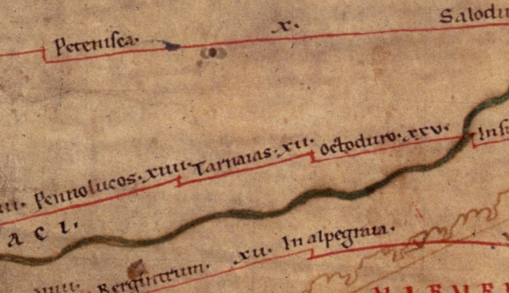 Petenisca. x. Salodu
Pennolucos. xiiii. Tarnaias. xii. octoduro. xxv.
a c i.
Bergintrum. xii. In alpegraia.